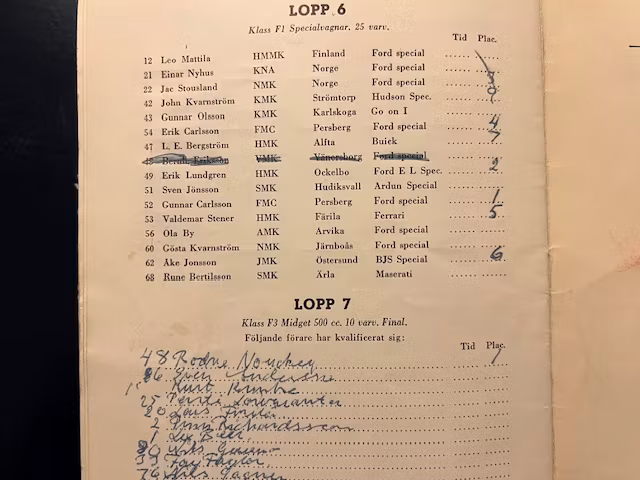 LOPP 6
Klass F1 Specialvagnar. 25 varv.
Tid Plac.
12 Leo Mattila HMMK Finland Ford special
21 Einar Nyhus KNA Norge Ford special
22 Jac Stousland NMK Norge Ford special 8
42 John Kvarnström KMK Strömtorp Hudson Spec. 9
43 Gunnar Olsson KMK Karlskoga Go on I
54 Erik Carlsson FMC Persberg Ford special 4
47 L. E. Bergström HMK Alfta Buick 7
48 Bernh. Eriksson VMK Vänersborg Ford special
49 Erik Lundgren HMK Ockelbo Ford E L Spec. 2
51 Sven Jönsson SMK Hudiksvall Ardun Special
52 Gunnar Carlsson FMC Persberg Ford special 1
53 Valdemar Stener HMK Färila Ferrari 5
56 Ola By AMK Arvika Ford special
60 Gösta Kvarnström NMK Järnboås Ford special
62 Åke Jonsson JMK Östersund BJS Special 6
68 Rune Bertilsson SMK Ärla Maserati
LOPP 7
Klass F3 Midget 500 cc. 10 varv. Final.
Följande förare har kvalificerat sig:
Tid Plac.
48 Bodne
Sven Andersson
Kurt
25
20 Lars
2 Richardsson
1
Taylor
76 Nils